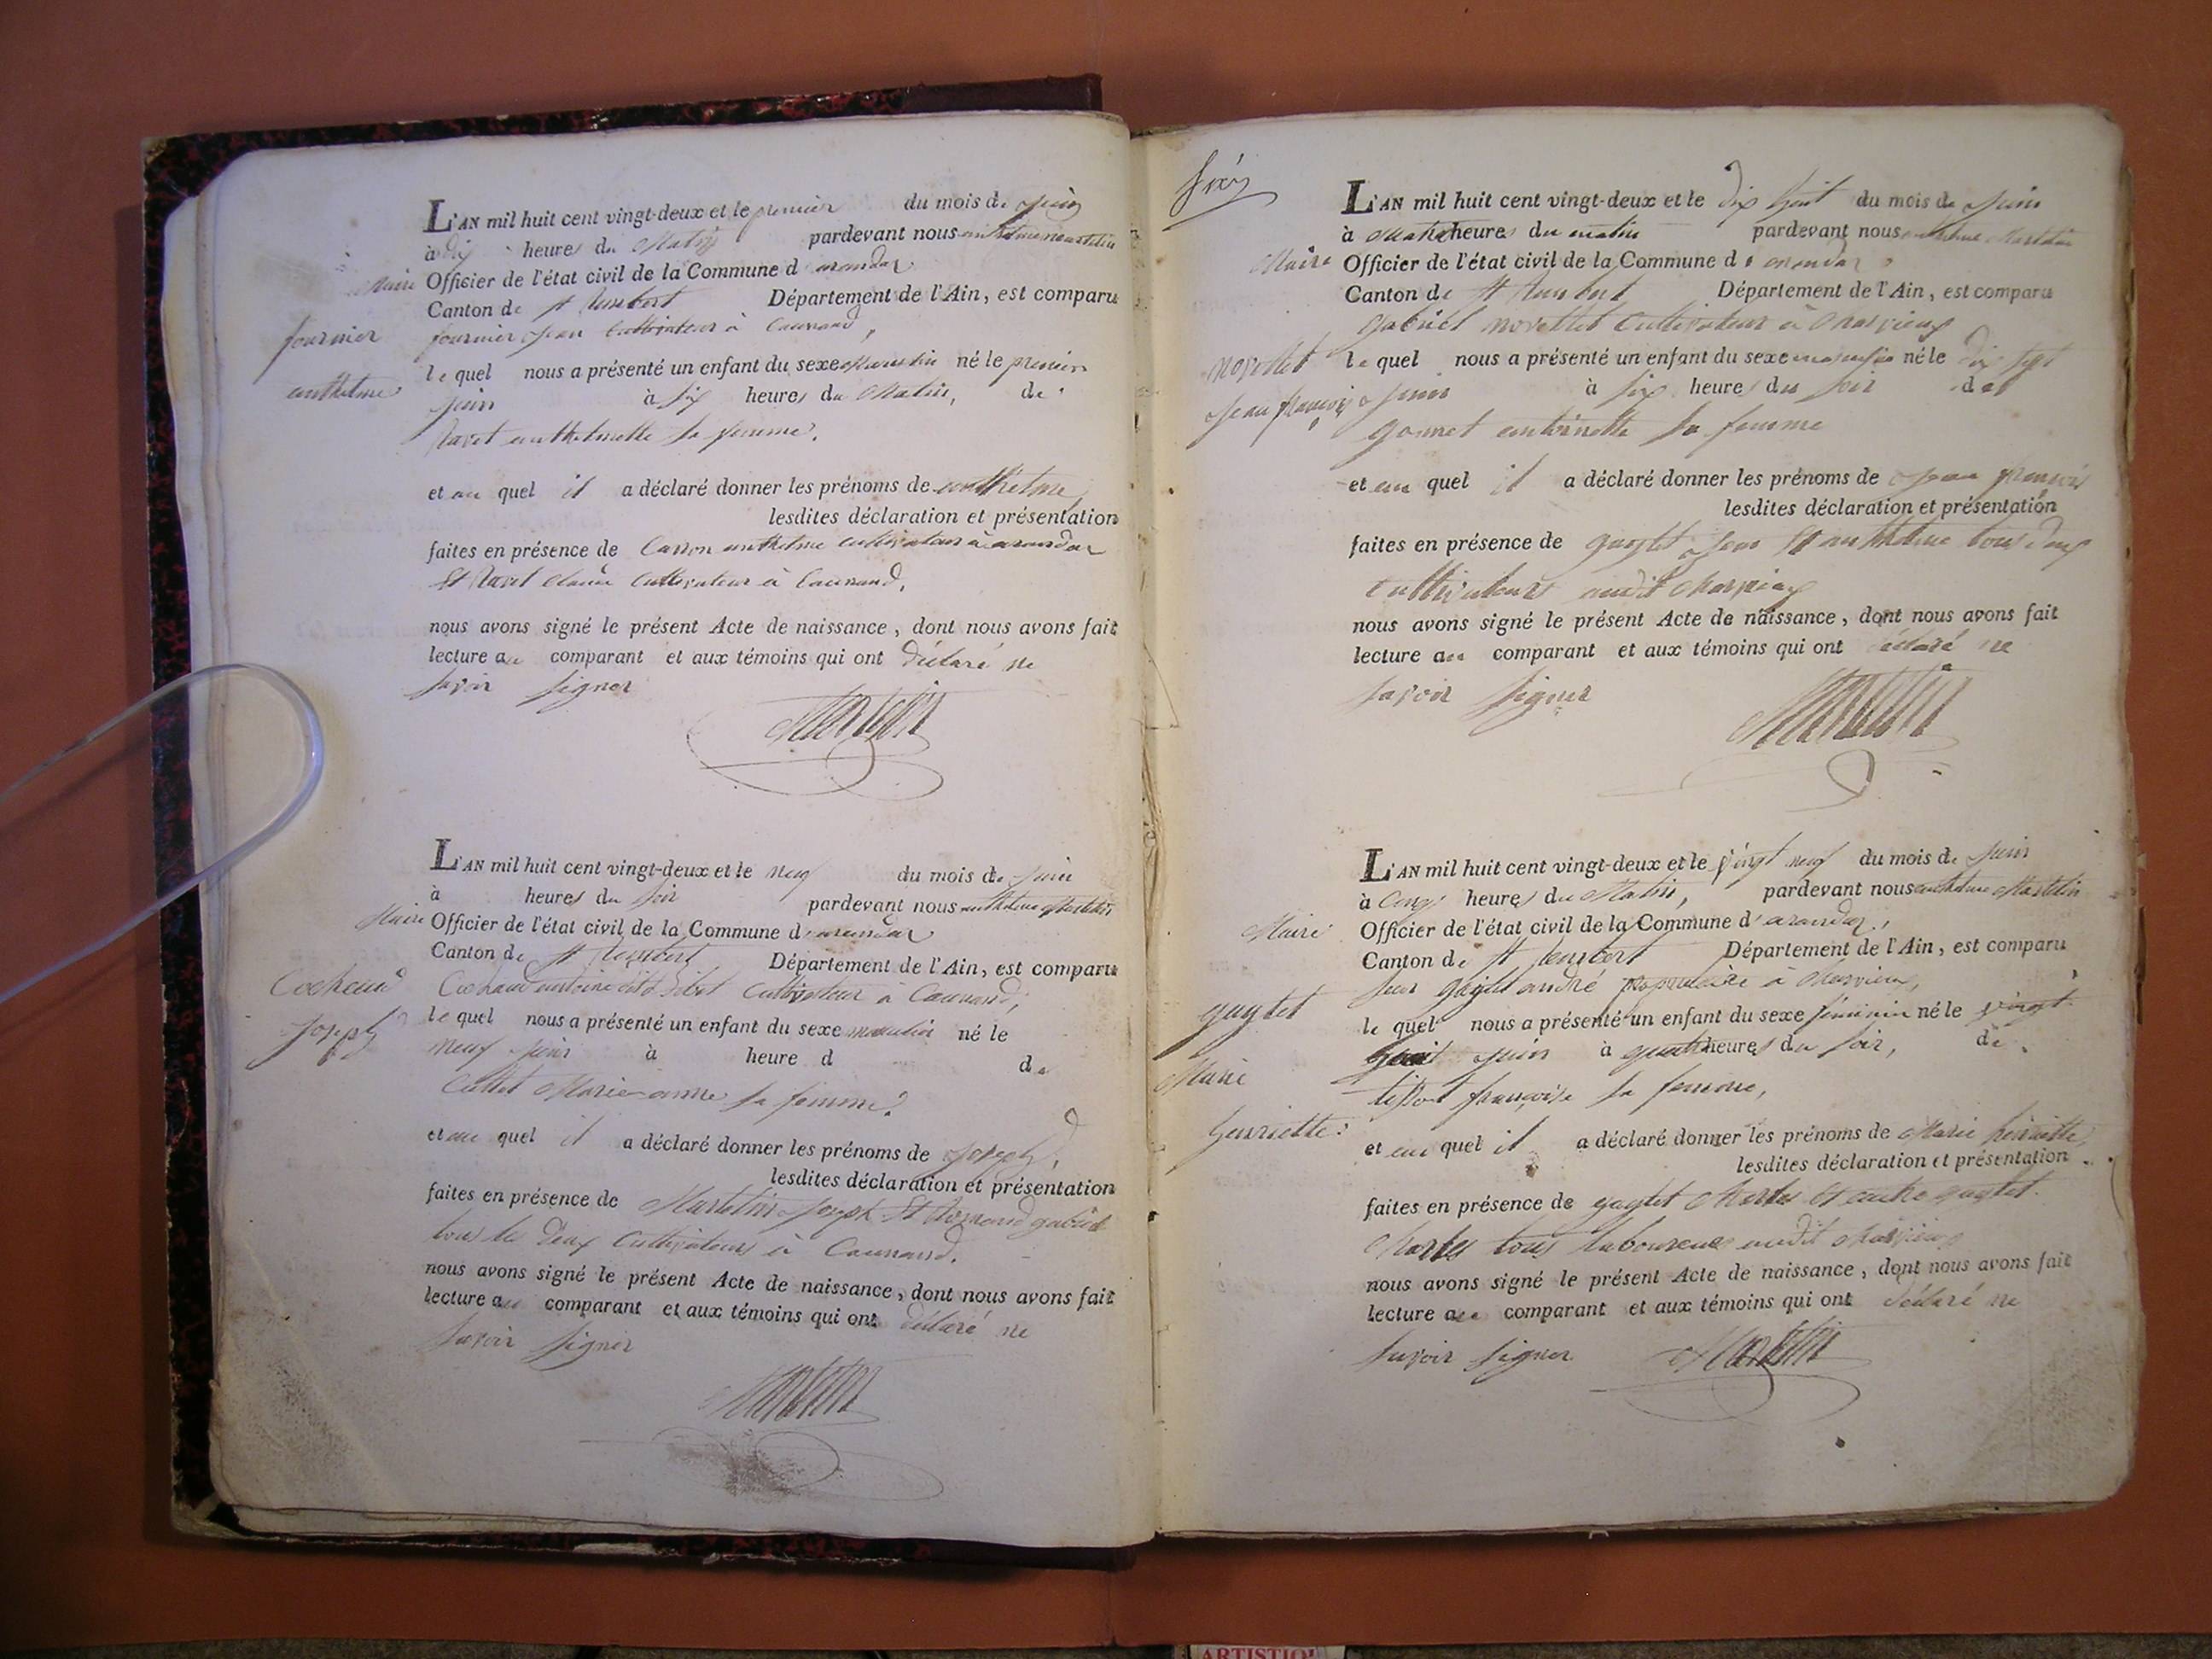 L'AN mil huit cent vingt-deux et le premier du mois de juin
à dix heures du Matin pardevant nous anthelme Martelin
Maire Officier de l'état civil de la Commune d'arandas
Canton de St Rambert Département de l'Ain, est comparu
fournier
fournier jean Cultivateur à
anthelme
le quel nous a présenté un enfant du sexe Masculin né le premier
juin à six heures du Matin, de
anthelmette sa femme.
et au quel il a déclaré donner les prénoms de anthelme
lesdites déclaration et présentation
faites en présence de Carron anthelme cultivateur à arandas
Et Claude Cultivateur à
nous avons signé le présent Acte de naissance, dont nous avons fait
lecture au comparant et aux témoins qui ont déclaré ne
savoir signer
Martelin
L'AN mil huit cent vingt-deux et le neuf du mois de juin
à heures du soir pardevant nous anthelme Martelin
Maire Officier de l'état civil de la Commune d'arandas
Canton de St Rambert Département de l'Ain, est comparu
Cochaud
Cochaud antoine dit Cultivateur à
joseph
le quel nous a présenté un enfant du sexe masculin né le
neuf juin à heure d de
Cullet Marie anne sa femme.
et au quel il a déclaré donner les prénoms de joseph,
lesdites déclaration et présentation
faites en présence de Martelin joseph Et gabriel
tous les deux Cultivateurs à
nous avons signé le présent Acte de naissance, dont nous avons fait
lecture au comparant et aux témoins qui ont déclaré ne
savoir signer
Martelin
Six
L'AN mil huit cent vingt-deux et le dix huit du mois de juin
à heures du matin pardevant nous anthelme Martelin
Maire Officier de l'état civil de la Commune d'arandas
Canton de St Rambert Département de l'Ain, est comparu
gabriel Cultivateur à
le quel nous a présenté un enfant du sexe masculin né le dix sept
jean françois
juin à six heures du soir de
gonnet antoinette sa femme
et au quel il a déclaré donner les prénoms de jean françois
lesdites déclaration et présentation
faites en présence de guytet jean Et anthelme tous deux
cultivateurs audit
nous avons signé le présent Acte de naissance, dont nous avons fait
lecture au comparant et aux témoins qui ont déclaré ne
savoir signer
Martelin
L'AN mil huit cent vingt-deux et le vingt neuf du mois de juin
à cinq heures du Matin, pardevant nous anthelme Martelin
Maire Officier de l'état civil de la Commune d'arandas,
Canton de St Rambert Département de l'Ain, est comparu
sieur guytet andré propriétaire à
guytet
le quel nous a présenté un enfant du sexe féminin né le vingt
Marie
huit juin à quatre heures du soir, de
tissot françoise sa femme,
henriette
et au quel il a déclaré donner les prénoms de Marie henriette
lesdites déclaration et présentation
faites en présence de guytet Charles Et autre guytet
Charles tous laboureurs audit
nous avons signé le présent Acte de naissance, dont nous avons fait
lecture au comparant et aux témoins qui ont déclaré ne
savoir signer
Martelin